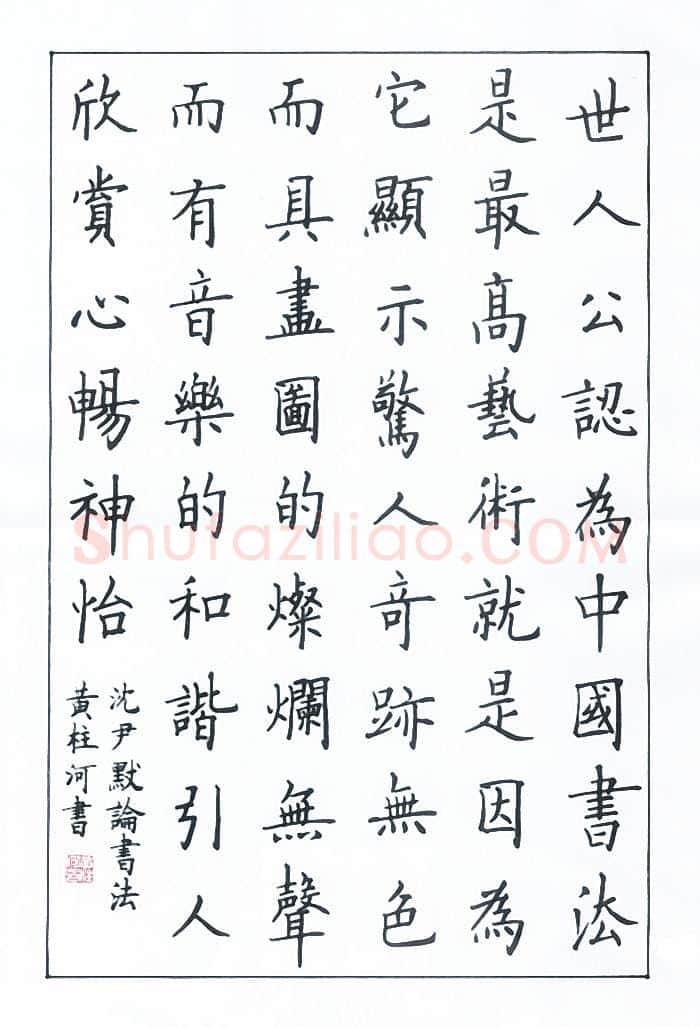 世人公認為中國書法
是最高藝術就是因為
它顯示驚人奇跡無色
而具畫圖的燦爛無聲
而有音樂的和諧引人
欣賞心暢神怡
沈尹默論書法
黃柱河書
Shufaziliao.COM